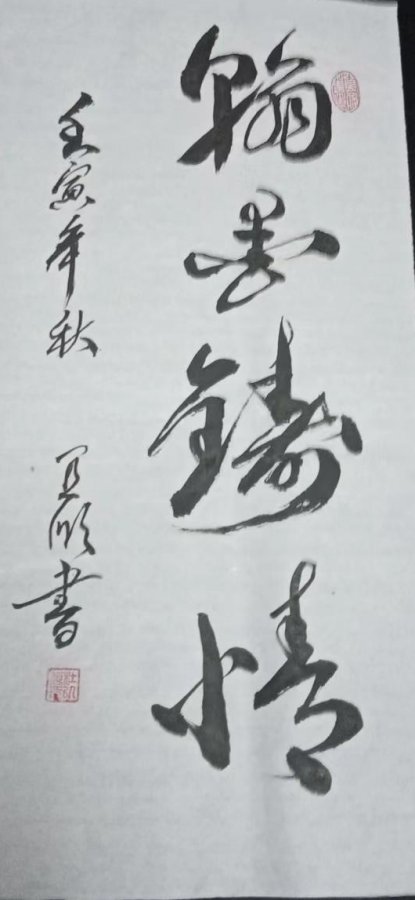 翰墨鑄情
壬寅年秋
順書